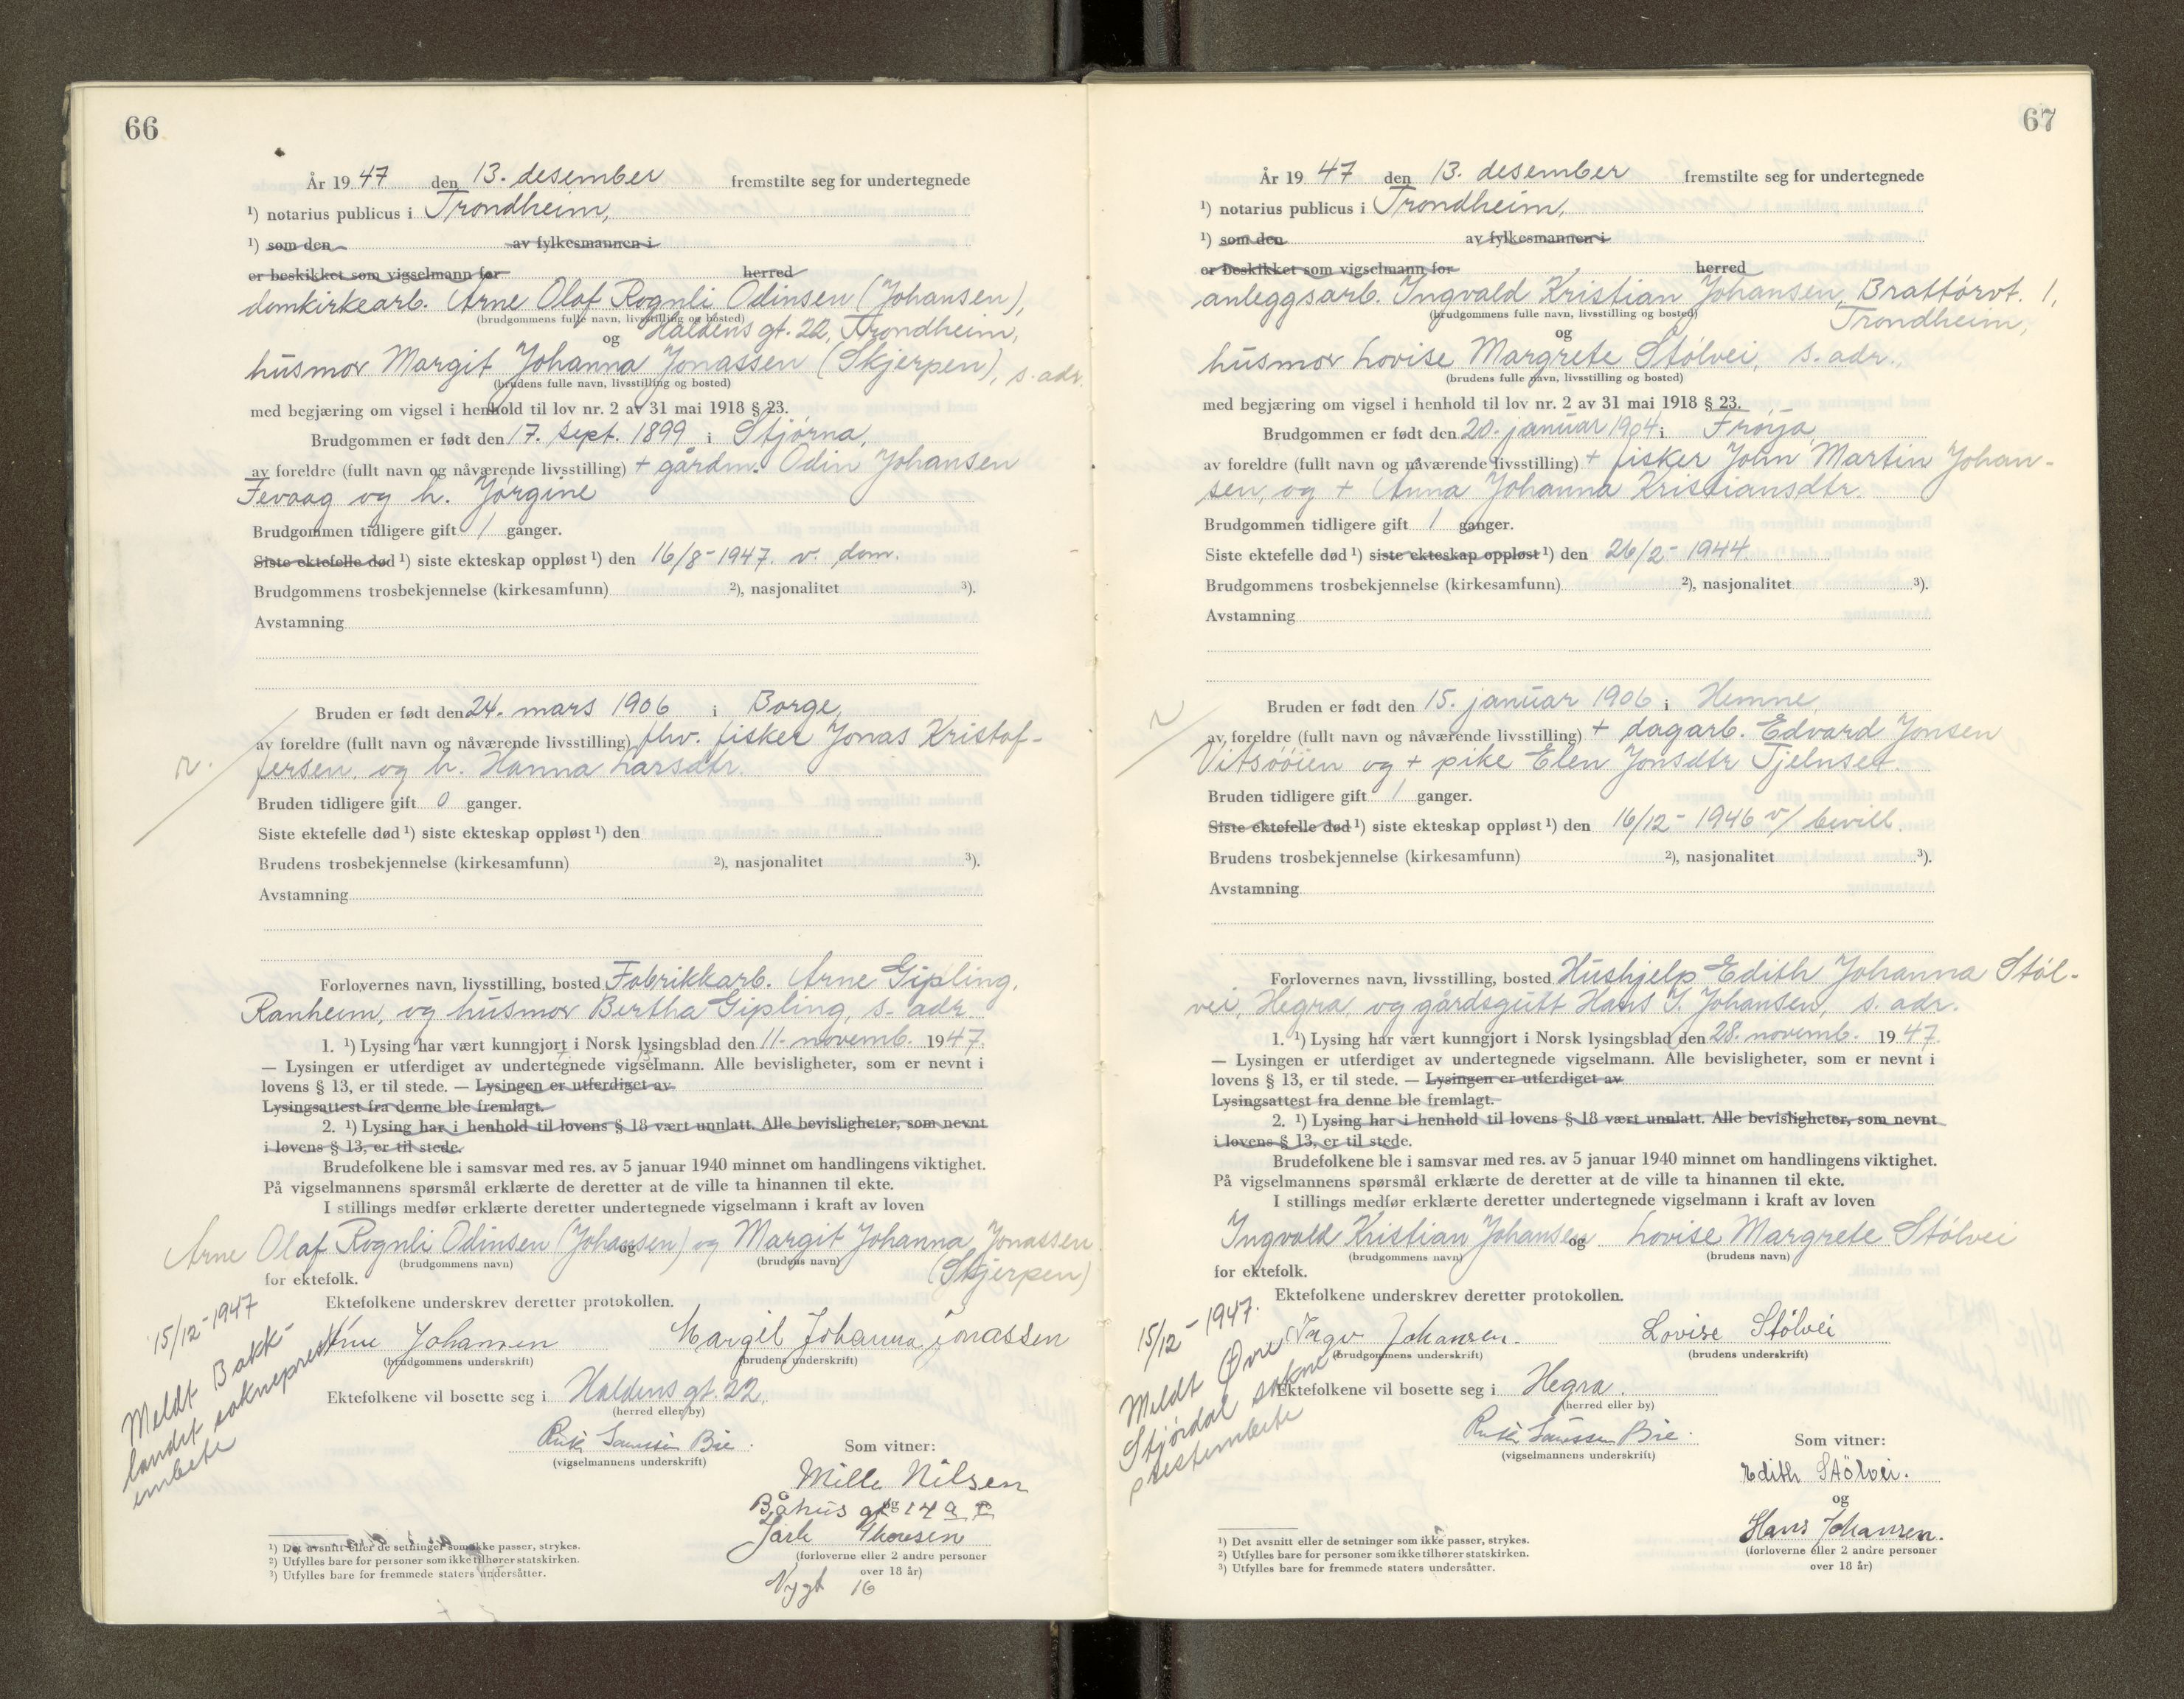 66
År 1947 den 13. desember fremstilte seg for undertegnede
¹) notarius publicus i Trondheim,
¹) som den av fylkesmannen i
er beskikket som vigselmann for herred
domkirkearb. Arne Olaf Rognli Odinsen (Johansen),
(brudgommens fulle navn, livsstilling og bosted)
og Haldens gt. 22, Trondheim,
husmor Margit Johanna Jonassen (Skjerpen), s. adr.
(brudens fulle navn, livsstilling og bosted)
med begjæring om vigsel i henhold til lov nr. 2 av 31 mai 1918 § 23.
Brudgommen er født den 17. sept. 1899 i Stjørna,
av foreldre (fullt navn og nåværende livsstilling) + gårdm. Odin Johansen
Fevaag og h. Jørgine
Brudgommen tidligere gift 1 ganger.
Siste ektefelle død ¹) siste ekteskap oppløst ¹) den 16/8-1947. v. dom.
Brudgommens trosbekjennelse (kirkesamfunn) ²), nasjonalitet ³).
Avstamning
Bruden er født den 24. mars 1906 i Borge,
av foreldre (fullt navn og nåværende livsstilling) fhv. fisker Jonas Kristof-
fersen, og h. Hanna Larsdtr.
Bruden tidligere gift 0 ganger.
Siste ektefelle død ¹) siste ekteskap oppløst ¹) den
Brudens trosbekjennelse (kirkesamfunn) ²), nasjonalitet ³).
Avstamning
Forlovernes navn, livsstilling, bosted Fabrikkarb. Arne Gipling,
Ranheim, og husmor Bertha Gipling, s. adr.
1. ¹) Lysing har vært kunngjort i Norsk lysingsblad den 11. novemb. 1947.
— Lysingen er utferdiget av undertegnede vigselmann. Alle bevisligheter, som er nevnt i
lovens § 13, er til stede. — Lysingen er utferdiget av
Lysingsattest fra denne ble fremlagt.
2. ¹) Lysing har i henhold til lovens § 18 vært unnlatt. Alle bevisligheter, som nevnt
i lovens § 13, er til stede.
Brudefolkene ble i samsvar med res. av 5 januar 1940 minnet om handlingens viktighet.
På vigselmannens spørsmål erklærte de deretter at de ville ta hinannen til ekte.
I stillings medfør erklærte deretter undertegnede vigselmann i kraft av loven
Arne Olaf Rognli Odinsen (Johansen) og Margit Johanna Jonassen
og
(brudgommens navn) (brudens navn) (Skjerpen)
for ektefolk.
Ektefolkene underskrev deretter protokollen.
15/12-1947
Meldt Bakk-
landet sokneprest-
embete
Arne Johansen Margit Johanna Jonassen
(brudgommens underskrift) (brudens underskrift)
Ektefolkene vil bosette seg i Haldens gt. 22.
(herred eller by)
Bie.
(vigselmannens underskrift)
Som vitner:
Mille Nilsen
Båhus gt 14
og
Jarle Thoresen
(forloverne eller 2 andre personer
over 18 år)
16
¹) Det avsnitt eller de setninger som ikke passer, strykes.
²) Utfylles bare for personer som ikke tilhører statskirken.
³) Utfylles bare for fremmede staters undersåtter.
67
År 1947 den 13. desember fremstilte seg for undertegnede
¹) notarius publicus i Trondheim,
¹) som den av fylkesmannen i
er beskikket som vigselmann for herred
anleggsarb. Ingvald Kristian Johansen, Brattørvt. 1,
(brudgommens fulle navn, livsstilling og bosted)
og Trondheim,
husmor Lovise Margrete Stølvei, s. adr.
(brudens fulle navn, livsstilling og bosted)
med begjæring om vigsel i henhold til lov nr. 2 av 31 mai 1918 § 23.
Brudgommen er født den 20. januar 1904 i Frøya
av foreldre (fullt navn og nåværende livsstilling) + fisker John Martin Johan-
sen, og + Anna Johanna Kristiansdtr.
Brudgommen tidligere gift 1 ganger.
Siste ektefelle død ¹) siste ekteskap oppløst ¹) den 26/2-1944.
Brudgommens trosbekjennelse (kirkesamfunn) ²), nasjonalitet ³).
Avstamning
Bruden er født den 15. januar 1906 i Hemne,
av foreldre (fullt navn og nåværende livsstilling) + dagarb. Edvard Jonsen
Vitsøøien og + pike Elen Jonsdtr Tjelnset.
Bruden tidligere gift 1 ganger.
Siste ektefelle død ¹) siste ekteskap oppløst ¹) den 16/12-1946 v/ bevill.
Brudens trosbekjennelse (kirkesamfunn) ²), nasjonalitet ³).
Avstamning
Forlovernes navn, livsstilling, bosted Hushjelp Edith Johanna Støl-
vei, Hegra, og gårdsgutt Hans J. Johansen, s. adr.
1. ¹) Lysing har vært kunngjort i Norsk lysingsblad den 28. novemb. 1947.
— Lysingen er utferdiget av undertegnede vigselmann. Alle bevisligheter, som er nevnt i
lovens § 13, er til stede. — Lysingen er utferdiget av
Lysingsattest fra denne ble fremlagt.
2. ¹) Lysing har i henhold til lovens § 18 vært unnlatt. Alle bevisligheter, som nevnt
i lovens § 13, er til stede.
Brudefolkene ble i samsvar med res. av 5 januar 1940 minnet om handlingens viktighet.
På vigselmannens spørsmål erklærte de deretter at de ville ta hinannen til ekte.
I stillings medfør erklærte deretter undertegnede vigselmann i kraft av loven
Ingvald Kristian Johansen og Lovise Margrete Stølvei
(brudgommens navn) (brudens navn)
for ektefolk.
Ektefolkene underskrev deretter protokollen.
15/12-1947.
Meldt Øvre
Stjørdal sokne-
prestembete
Ingv Johansen. Lovise Stølvei
(brudgommens underskrift) (brudens underskrift)
Ektefolkene vil bosette seg i Hegra.
(herred eller by)
Bie.
(vigselmannens underskrift)
Som vitner:
Edith Stølvei.
og
Hans Johansen.
(forloverne eller 2 andre personer
over 18 år)
¹) Det avsnitt eller de setninger som ikke passer, strykes.
²) Utfylles bare for personer som ikke tilhører statskirken.
³) Utfylles bare for fremmede staters undersåtter.